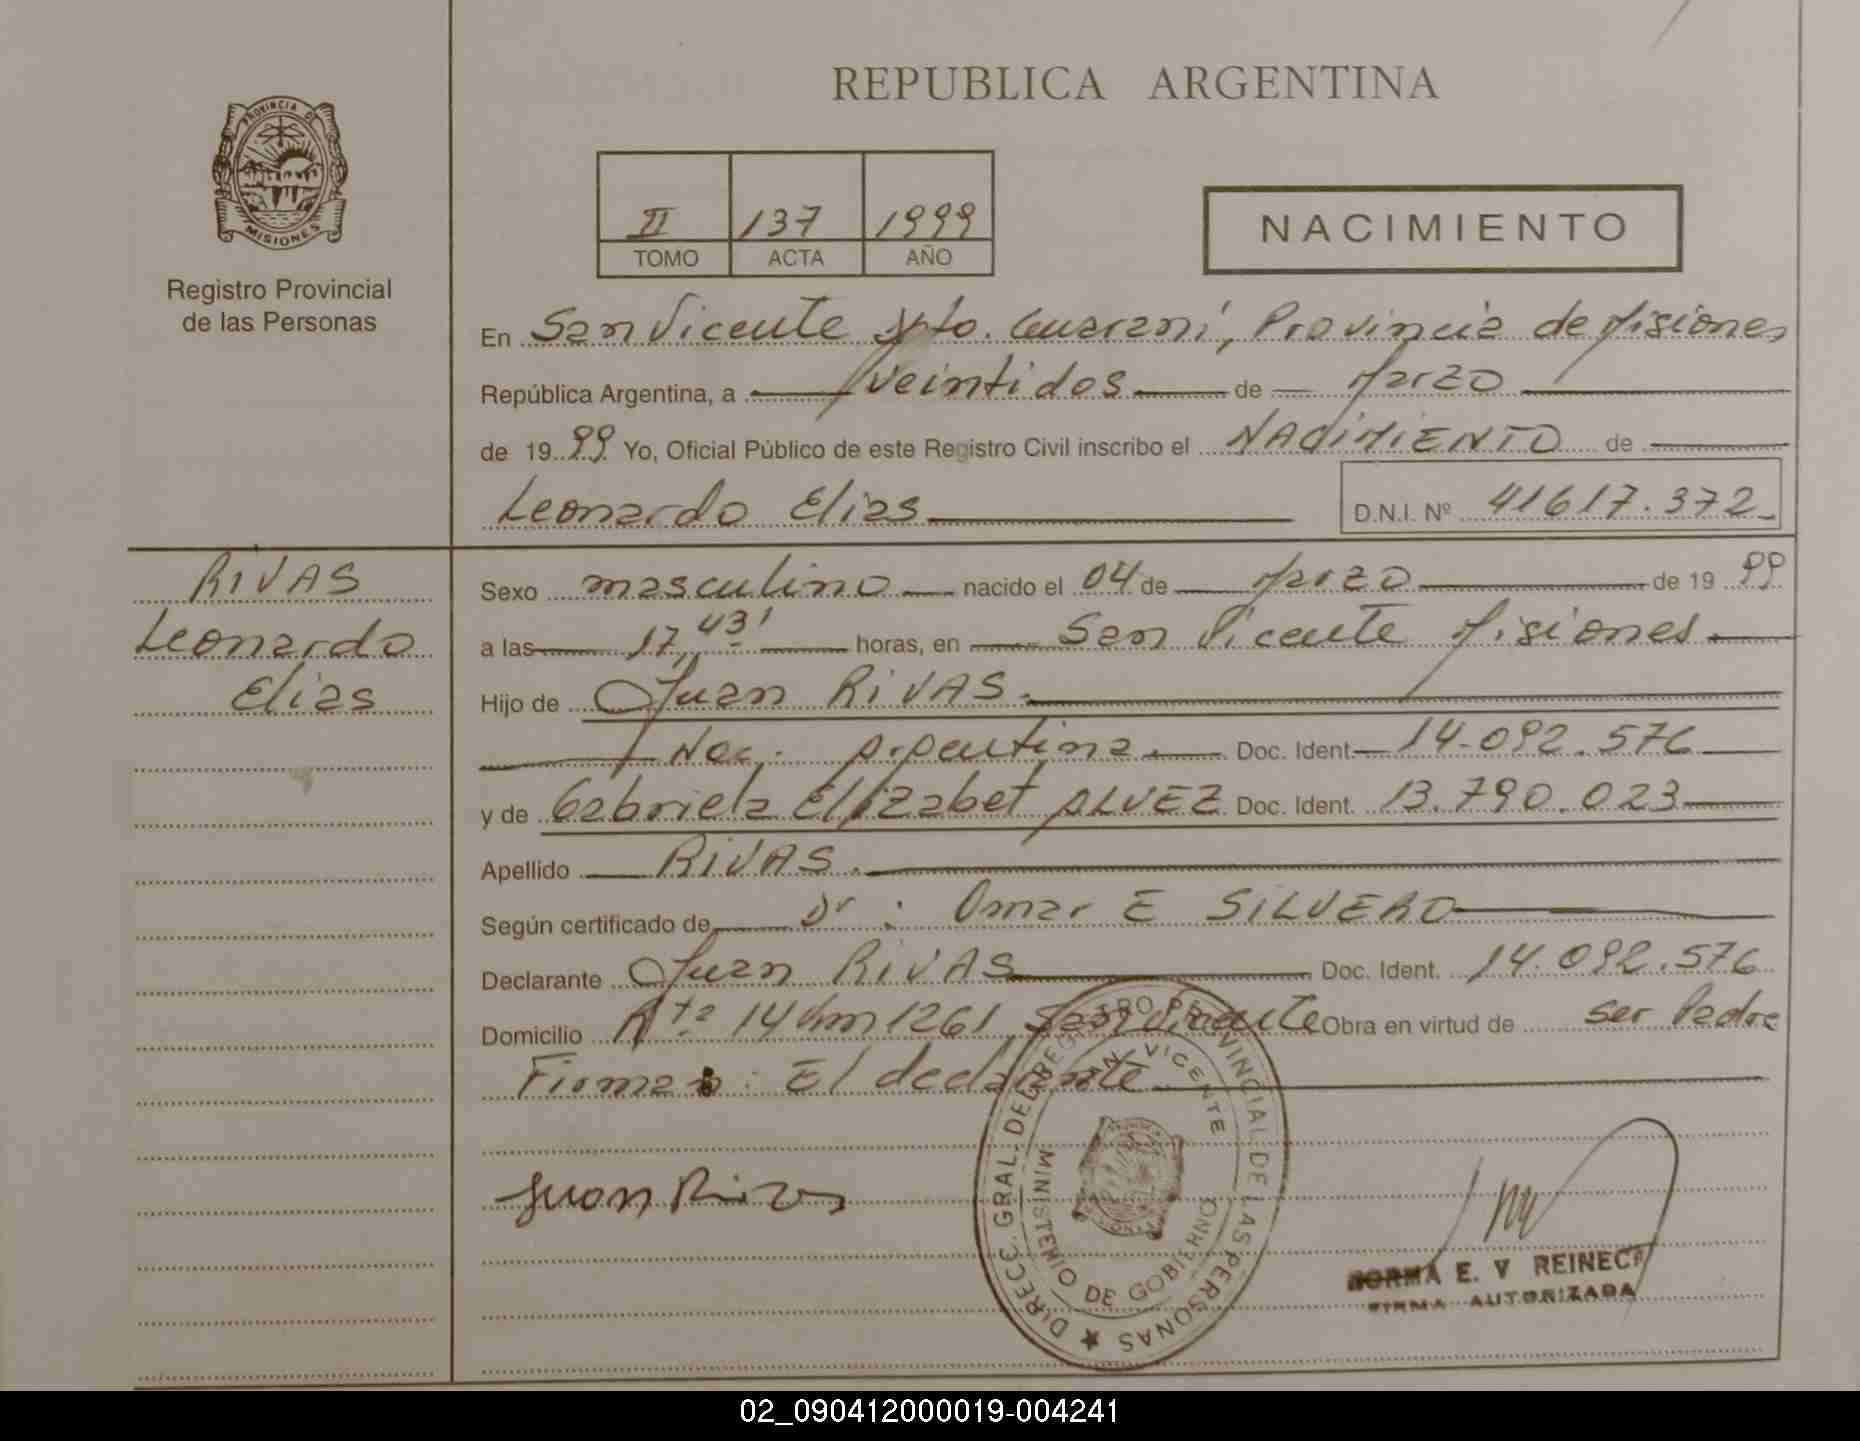 REPUBLICA ARGENTINA
PROVINCIA DE
MISIONES
Registro Provincial
de las Personas
II 137 1999
TOMO ACTA AÑO
NACIMIENTO
En San Vicente Dpto. Guaraní, Provincia de Misiones
República Argentina, a veintidos de Marzo
de 1999 Yo, Oficial Público de este Registro Civil inscribo el NACIMIENTO de
Leonardo Elias D.N.I. Nº 41617.372
RIVAS
Leonardo
Elias
Sexo masculino nacido el 04 de Marzo de 1999
a las 17,43' horas, en San Vicente Misiones
Hijo de Juan RIVAS.
Nac. Argentina. Doc. Ident. 14.092.576
y de Gabriela Elizabet ALVEZ Doc. Ident. 13.790.023
Apellido RIVAS.
Según certificado de Dr: Omar E SILVERO
Declarante Juan RIVAS Doc. Ident. 14.092.576
Domicilio Rta 14 Km 1261 San Vicente Obra en virtud de ser Padre
Firman: El declarante
Juan Rivas
DIRECC. GRAL. DEL REGISTRO PROVINCIAL DE LAS PERSONAS
SAN VICENTE
MINISTERIO DE GOBIERNO
NORMA E. V REINECK
FIRMA AUTORIZADA
02_090412000019-004241